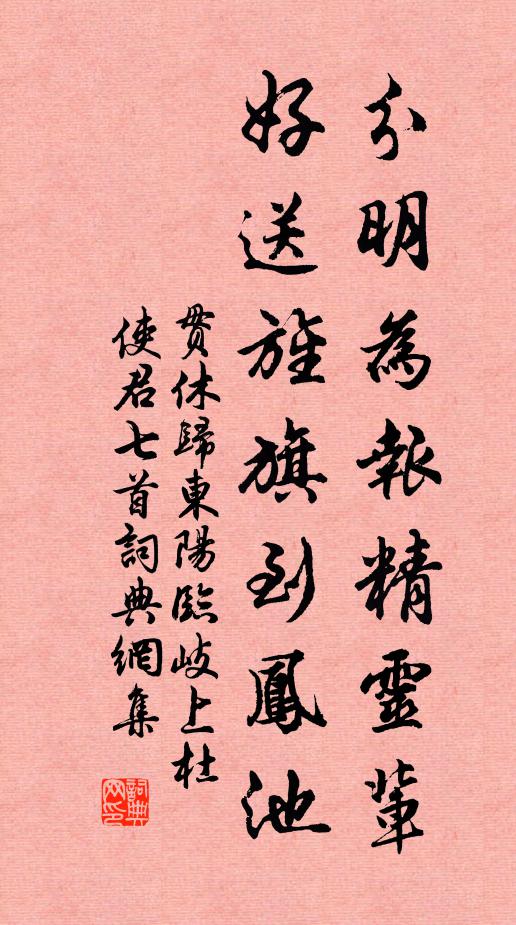 分明為報精靈輩
好送旌旗到鳳池
貫休歸東陽臨岐上杜
使君七首詞典網集
詞典
网印